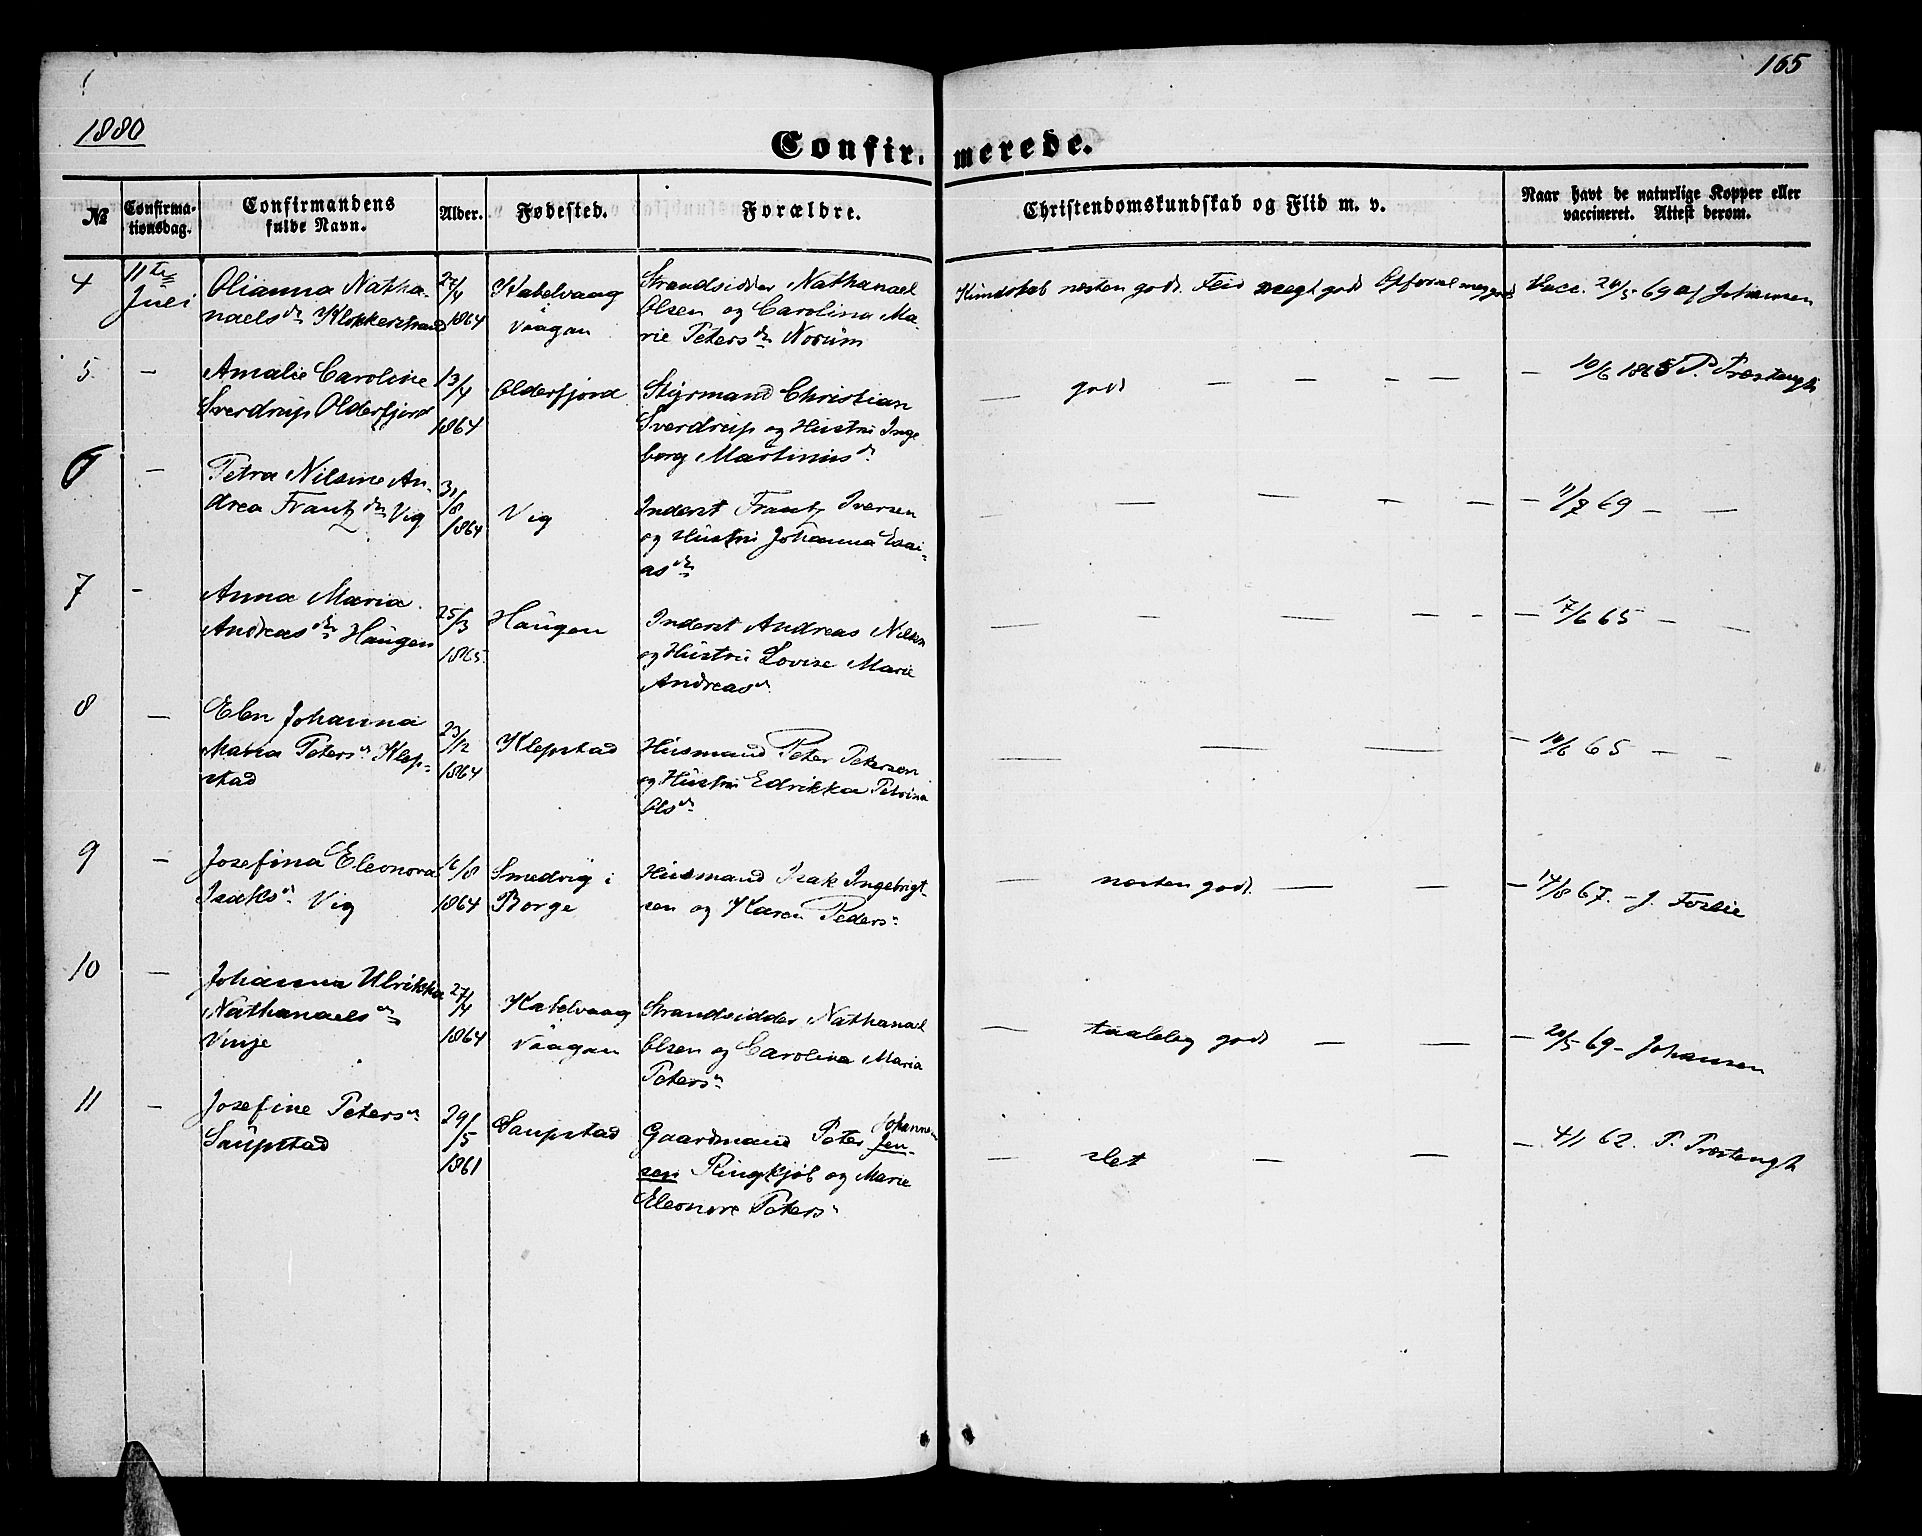 165
1880
Confirmerede.
№
Confirmationsdag.
Confirmandens fulde Navn.
Alder.
Fødested.
Forældre.
Christendomskundskab og Flid m. v.
Naar havt de naturlige Kopper eller vaccineret. Attest derom.
4 11te Juli
Olianna Natha-
naelsdr Klokkerstrand
27/4 1864
Kabelvaag
Vaagan
Strandsidder Nathanael
Olsen og Carolina Ma-
rie Petersdr Norum
Kundskab næsten god. Flid megt god Opførsel meg god
Vacc. 20/5 69 af Johansen
5 —
Amalie Caroline
Sverdrup Olderfjord
13/4 1864
Olderfjord
Styrmand Christian
Sverdrup og Hustru Inge
borg Martinusdr
— god — — — —
— 10/6 1865 P. Præstengb
6 —
Petra Nilsine An-
drea Frantzdr Vig
31/8 1864
Vig
Inderst Frantz Iversen
og Hustru Johanna Esai-
asdr
— — — — —
— 11/7 69 — —
7 -
Anna Maria
Andreasdr Haugen
25/3 1865
Haugen
Inderst Andreas Nilsen
og Hustru Lovise Marie
Andreasdr
— — — — —
— 17/6 65 — —
8 —
Elen Johanna
Maria Petersdr Klep-
stad
23/12 1864
Klepstad
Husmand Peter Petersen
og Hustru Edrikka Petrina
Olsdr
— — —
— 10/6 65 — —
9 —
Josefina Eleonora
Isaksdr Vig
16/8 1864
Smedvig i
Borge
Husmand Isak Ingebrigt-
sen og Karen Pedersdr
— næsten god. — —
— 14/8 67. - J. Foslie
10 —
Johanna Ulrikka
Nathanaelsdr
Vinje
27/4 1864
Kabelvaag
Vaagan
Strandsidder Nathanael
Olsen og Carolina Maria
Petersdr
— taaleleg god — —
— 20/5 69 - Johansen
11 —
Josefine Petersdr
Saupstad
29/5 1861
Saupstad
Gaardmand Peter Jen-
Johannesen
sen Ringkjøb og Marie
Eleonore Petersdr
— slet — —
— 4/1 62. P. Præstengb